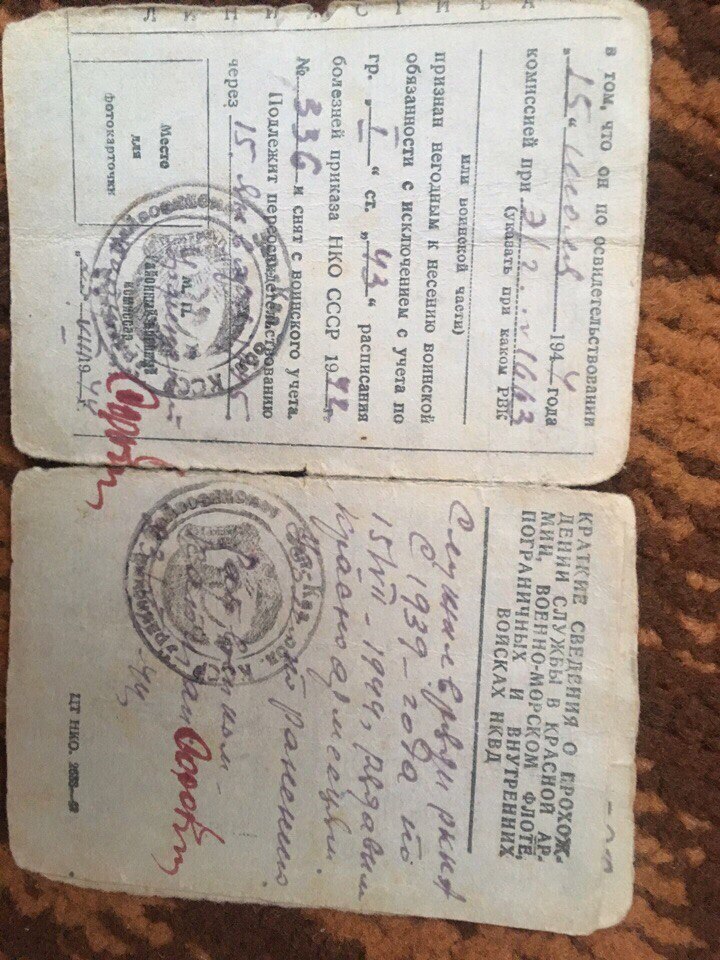 ЛИНИЯ ОТРЕЗА
в том, что он по освидетельствовании
„15“ июля 1944 года
комиссией при Э/г № 1663
(указать при каком РВК
или воинской части)
признан негодным к несению воинской
обязанности с исключением с учета по
гр. „I“ ст. „43“ расписания
болезней приказа НКО СССР 1942 г.
№ 336 и снят с воинского учета.
Подлежит переосвидетельствованию
через 15.
Место
для
фотокарточки
М. П.
VII 1944
КРАТКИЕ СВЕДЕНИЯ О ПРОХОЖ-
ДЕНИИ СЛУЖБЫ В КРАСНОЙ АР-
МИИ, ВОЕННО-МОРСКОМ ФЛОТЕ,
ПОГРАНИЧНЫХ И ВНУТРЕННИХ
ВОЙСКАХ НКВД
Служил в ряды РККА
с 1939-года по
15/VII-1944, рядовым
красноармейцем.
по ранению
ЦТ НКО.